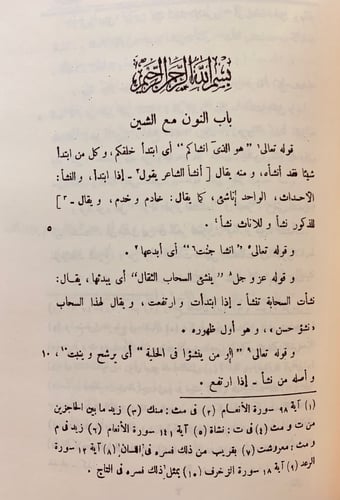 بسم الله الرحمن الرحيم
باب النون مع الشين
قوله تعالى١ ”هو الذى انشأكم“ أى ابتدأ خلقكم، و كل من ابتدأ
شيئا فقد أنشأه، و منه يقال [أنشأ الشاعر يقول٢ - إذا ابتدأ، و النشأ:
الأحداث، الواحد ناشئ، كما يقال: خادم و خدم، و يقال -٣]
للذكور نشأ و للاناث نشأ٤. ٥
و قوله تعالى٥ ”انشا جنت٦“ أى أبدعها٧.
و قوله عز و جل٨ ”ينشئ السحاب الثقال“ أى يبدئها، يقال:
نشأت السحابة تنشأ - إذا ابتدأت و ارتفعت، و يقال لهذا السحاب
«نشؤ حسن»، و هو أول ظهوره.
و قوله تعالى٩ ”او من ينشؤا فى الحلية“ أى يرشح و ينبت١٠، ١٠
و أصله من نشأ - إذا ارتفع.
(١) آية ٩٨ سورة الأنعام (٢) فى مث: منك (٣) زيد ما بين الحاجزين
من ت و مث (٤) فى ت: نشاة (٥) آية ١٤١ سورة الأنعام (٦) زيد فى م
و مث: معروشت (٧) بقريب من ذلك فسره فى اللسان (٨) آية ١٢ سورة
الرعد (٩) آية ١٨ سورة الزخرف (١٠) بمثل ذلك فسره فى التاج.